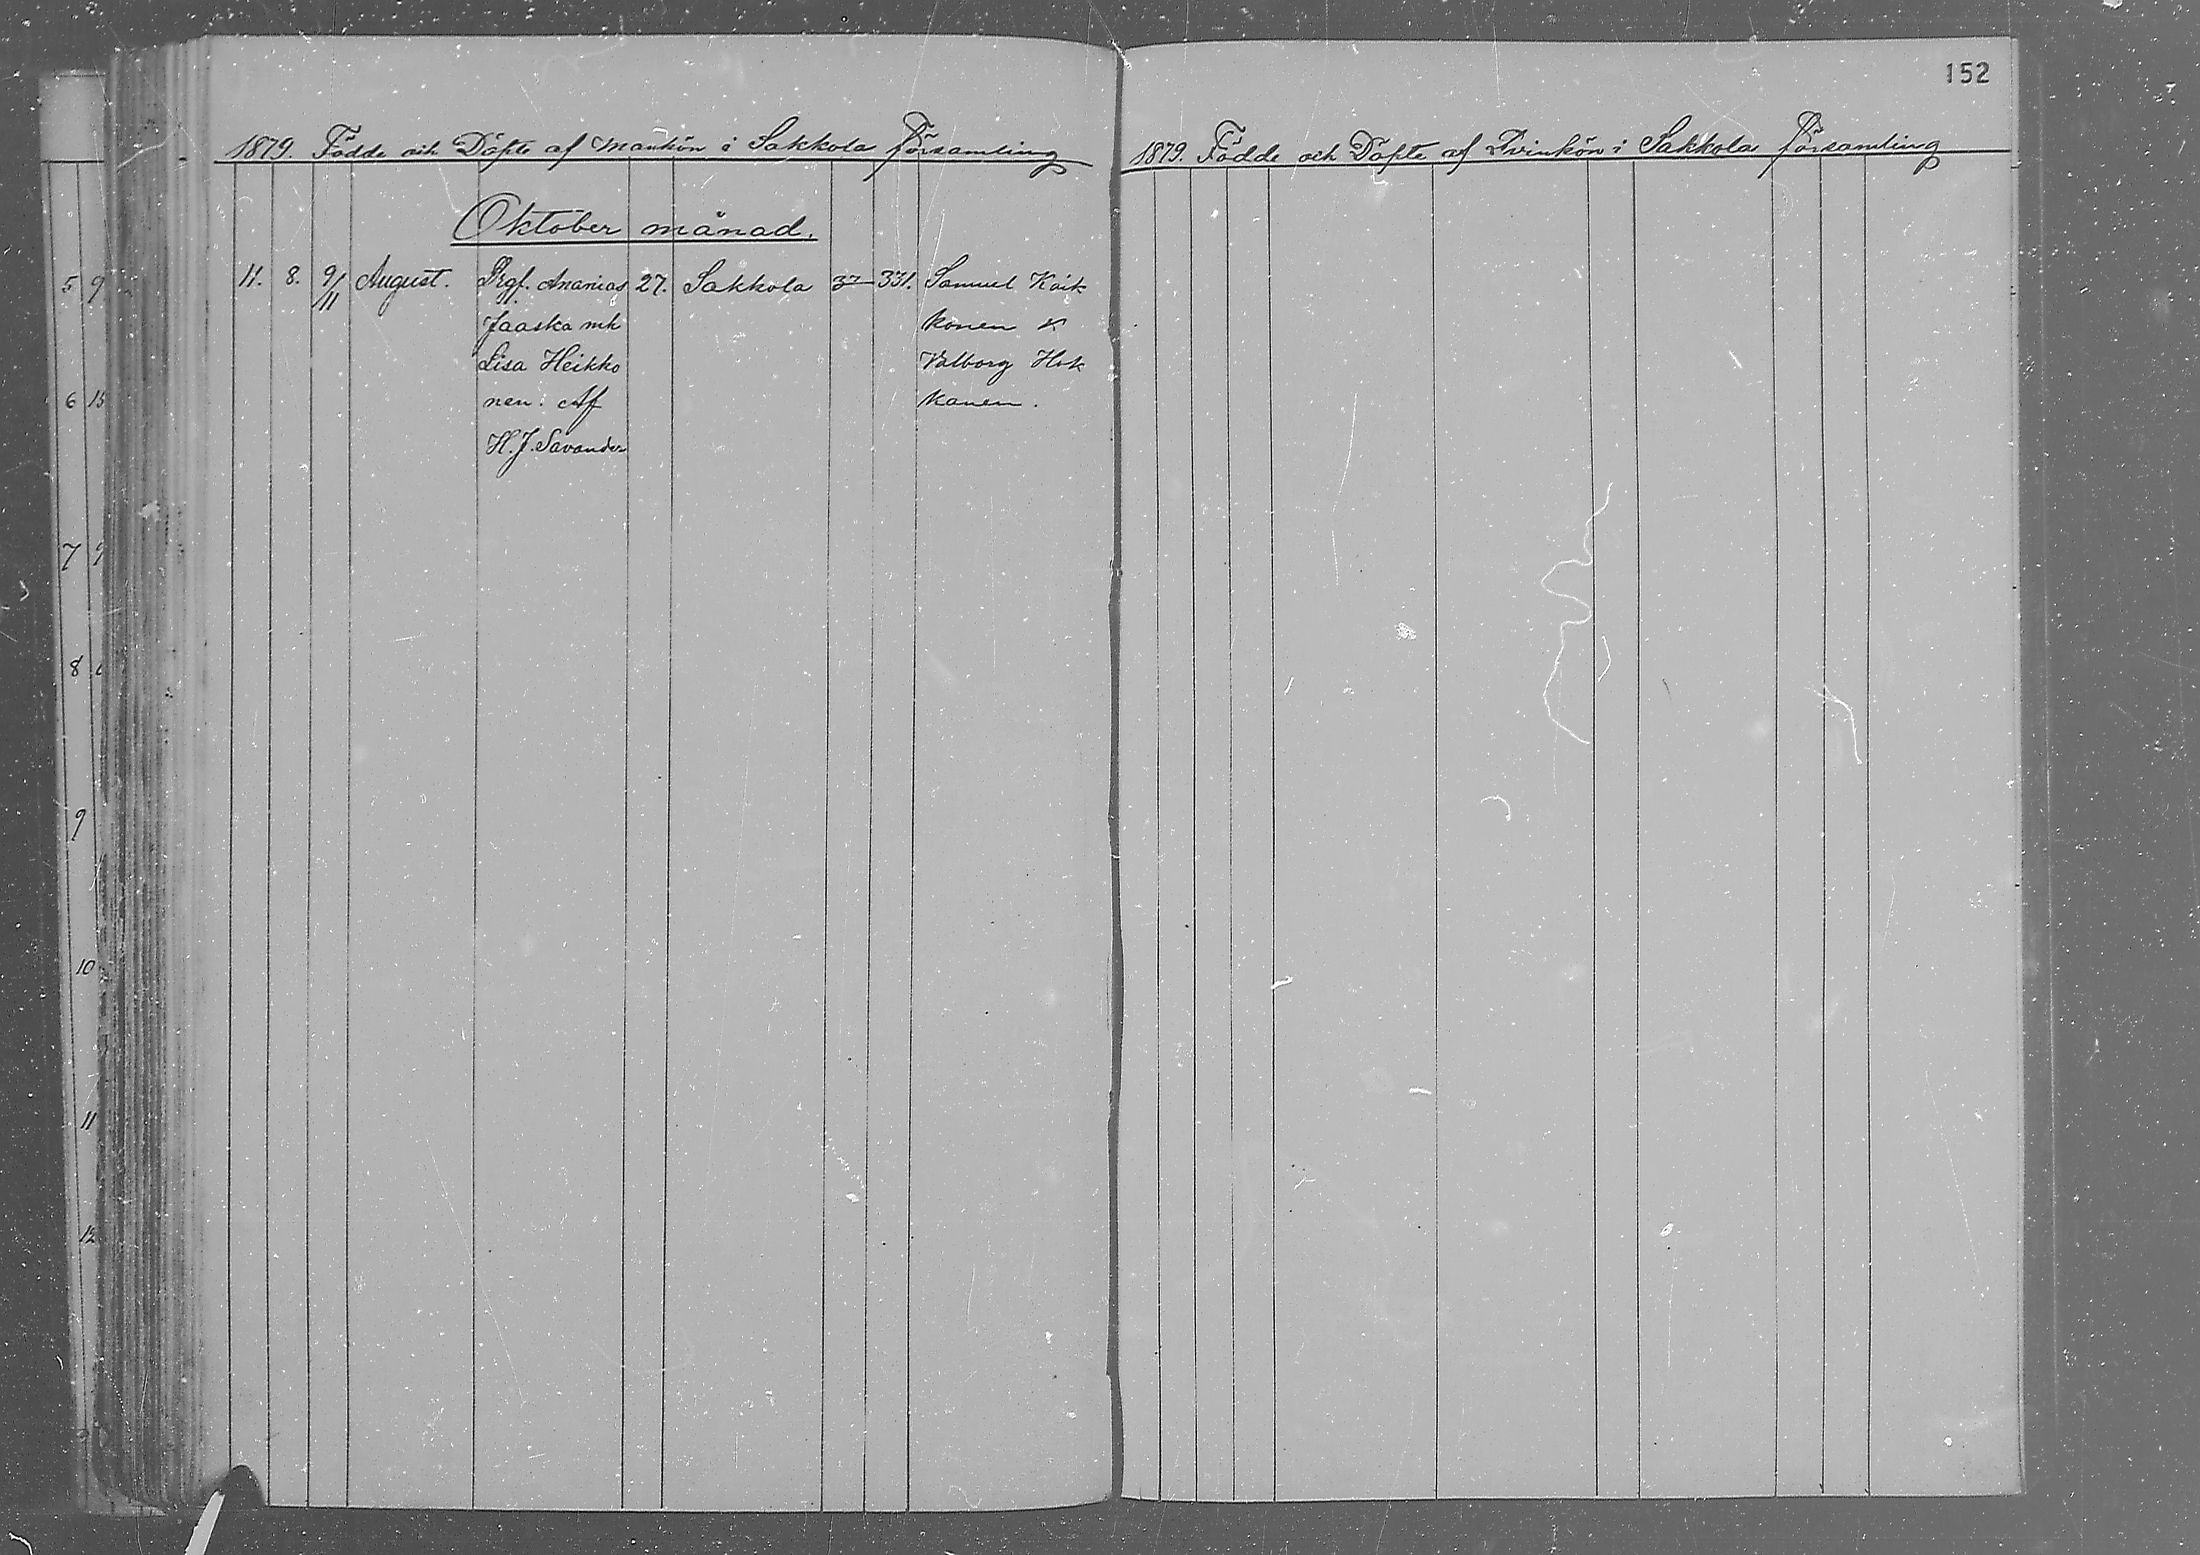 152
1879. Födde och Döpte af mankön i Sakkola församling
Oktober månad.
11. 8. 9/11 August. Ananias 27. Sakkola 37 331. Samuel Kaik
Jaaska mh konen &
Lisa Heikko Valborg Huk
nen. Af kanen.
H. J. Savander
1879. Födde och Döpte af Qvinkön i Sakkola församling
5 9
6 15
7 9
8
9
10
11
12